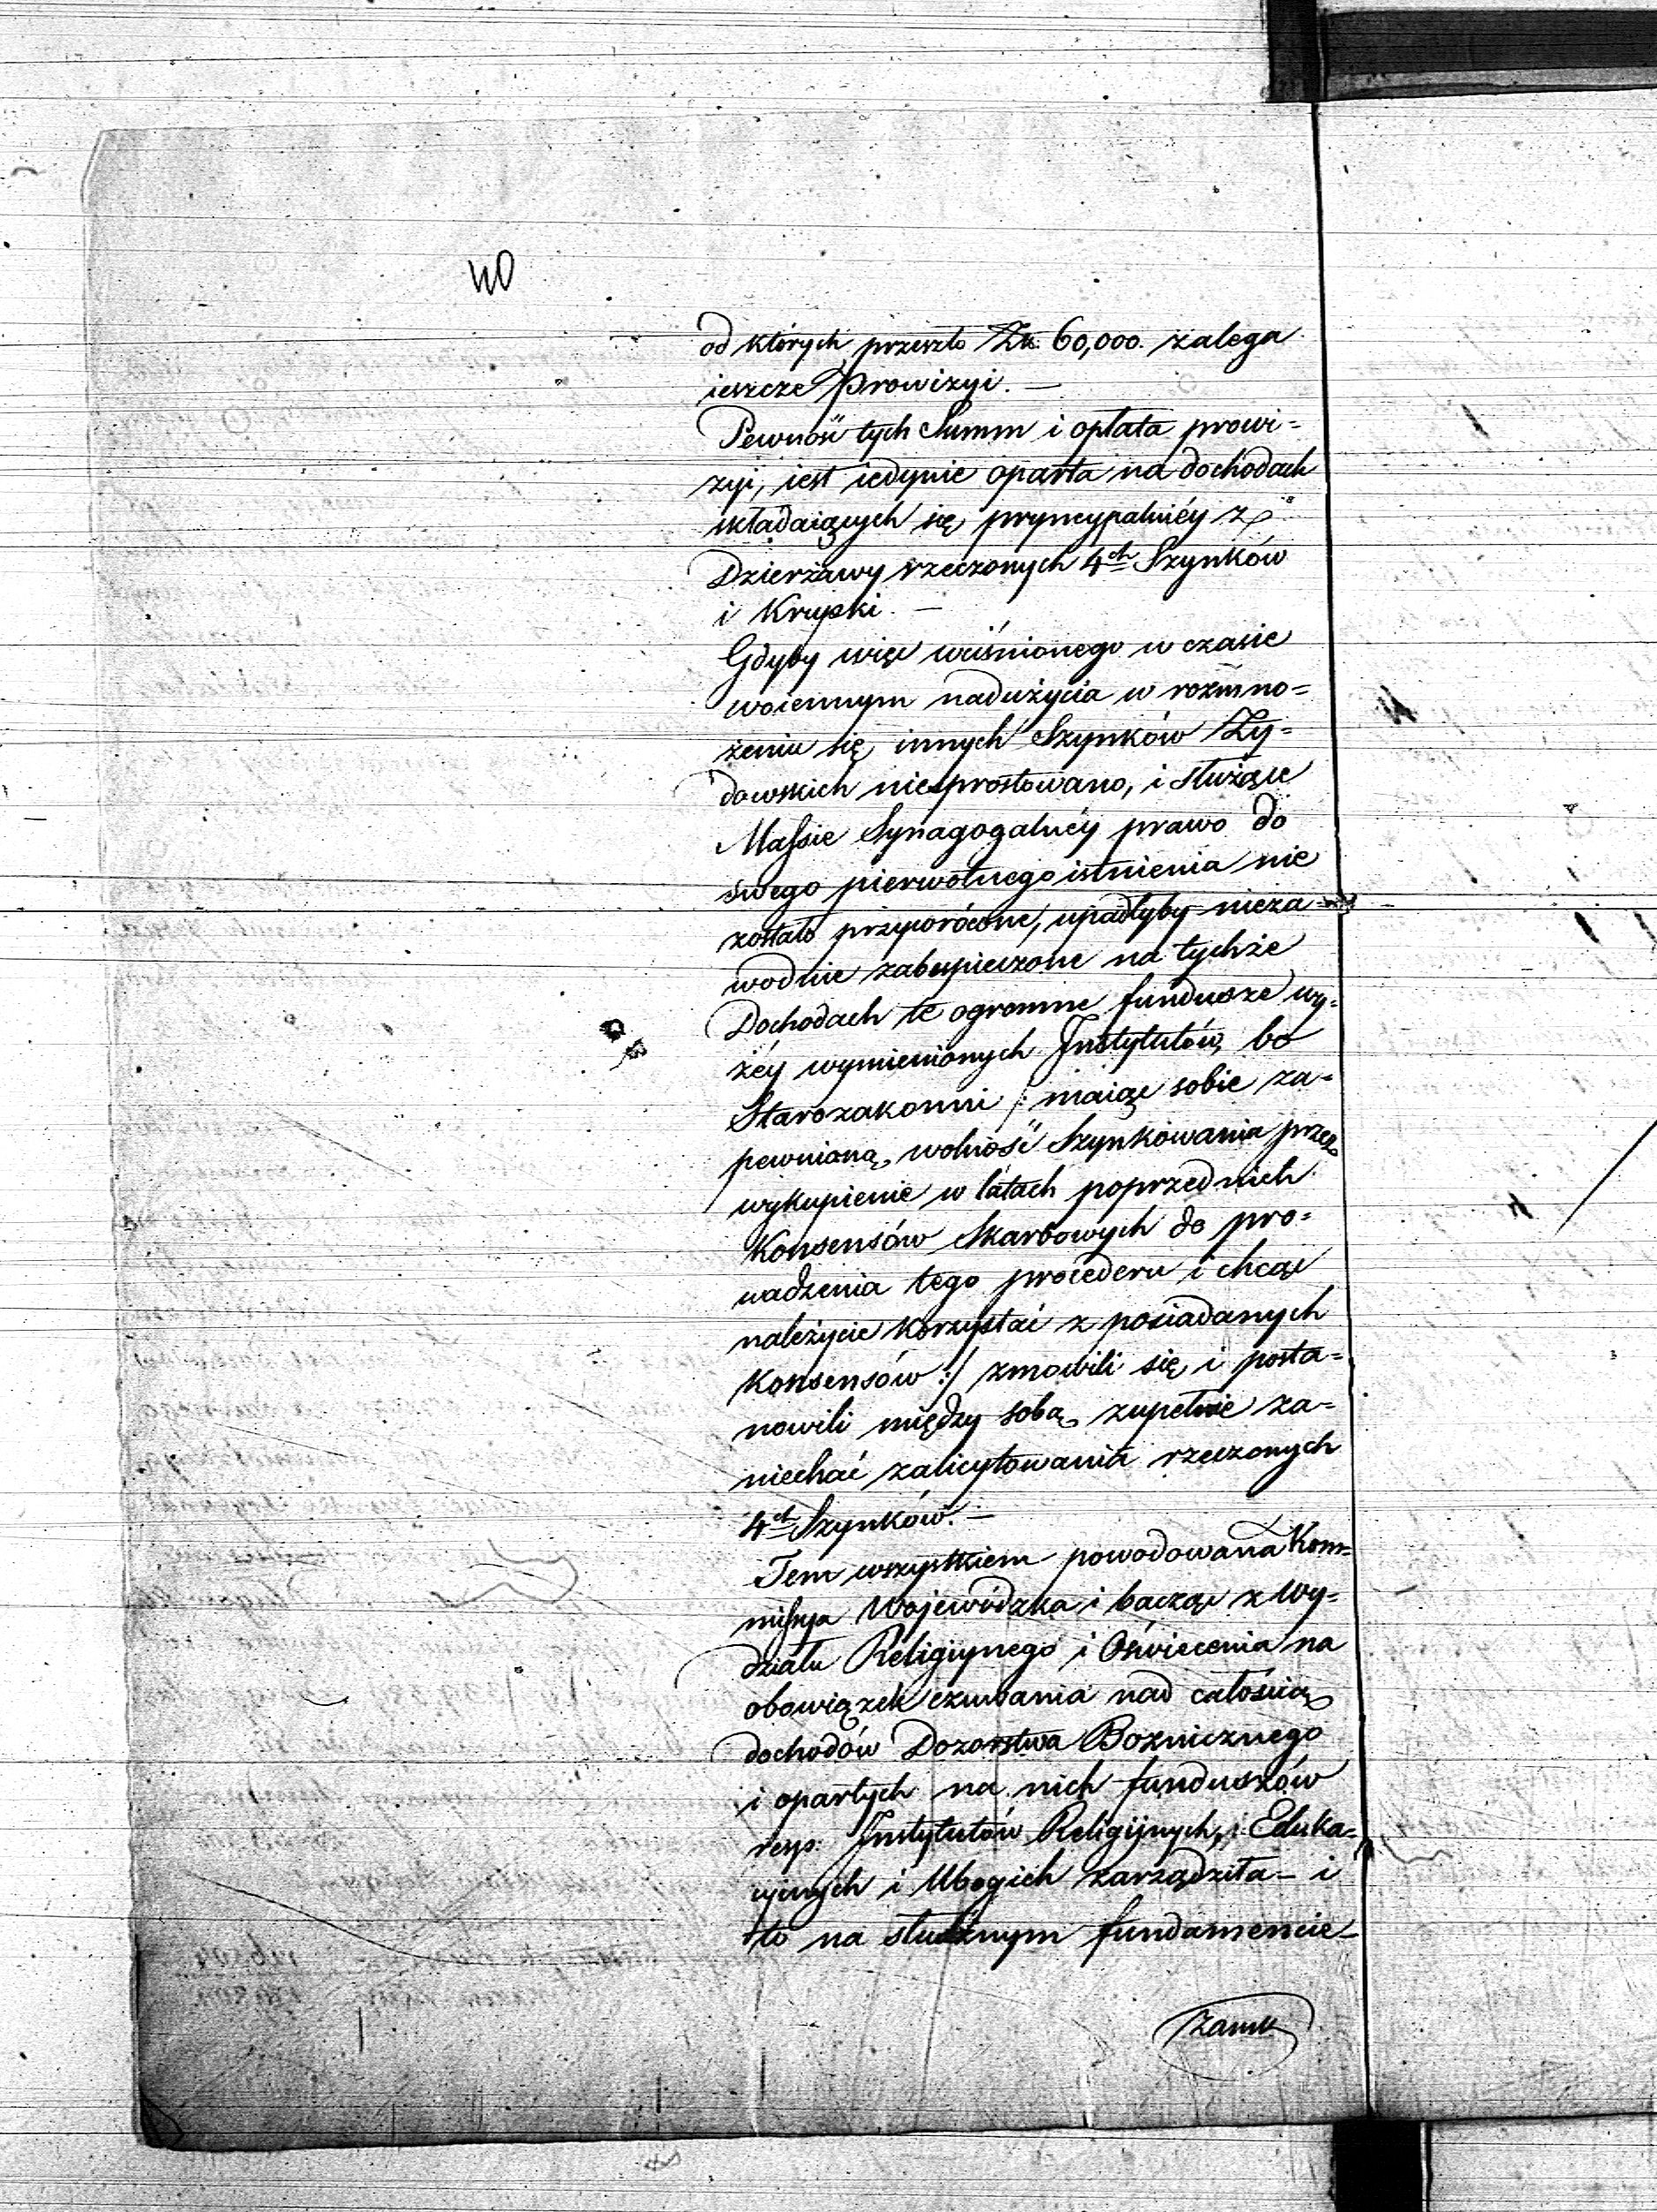 40
od których przeszło Złł. 60,000. zalega
ieszcze Prowizyi. —
Pewność tych Summ i opłata prowi=
zyi, iest iedynie oparta na dochodach
składaiących się pryncypalnéy z
Dzierżawy rzeczonych 4ch Szynków
i Krupki. —
Gdyby więc wciśnionego w czasie
woiennym nadużycia w rozmno=
żeniu się innych Szynków Ży=
dowskich niesprostowano, i służące
Massie Synagogalnéy prawo do
swego pierwotnego istnienia nie
zostało przywrócone, upadłyby nieza=
wodnie zabespieczone na tychże
Dochodach te ogromne fundusze wy=
żéy wymienionych Instytutów, bo
Starozakonni /: maiąc sobie za=
pewnioną wolność Szynkowania przez
wykupienie w latach poprzednich
Konsensów Skarbowych do pro=
wadzenia tego procederu i chcąc
należycie korzystać z posiadanych
Konsensów :/ zmowili się i posta=
nowili między sobą zupełnie za=
niechać zalicytowania rzeczonych
4ch Szynków. —
Tem wszystkiem powodowana Kom=
missya Wojewódzka i bacząc z Wy=
działu Religiynego i Oświecenia na
obowiązek czuwania nad całością
dochodów Dozorstwa Bożnicznego
i opartych na nich funduszów
resp. Instytutów Religijnych, i Eduka=
cyinych i Ubogich zarządziła — i
to na słusznym fundamencie —